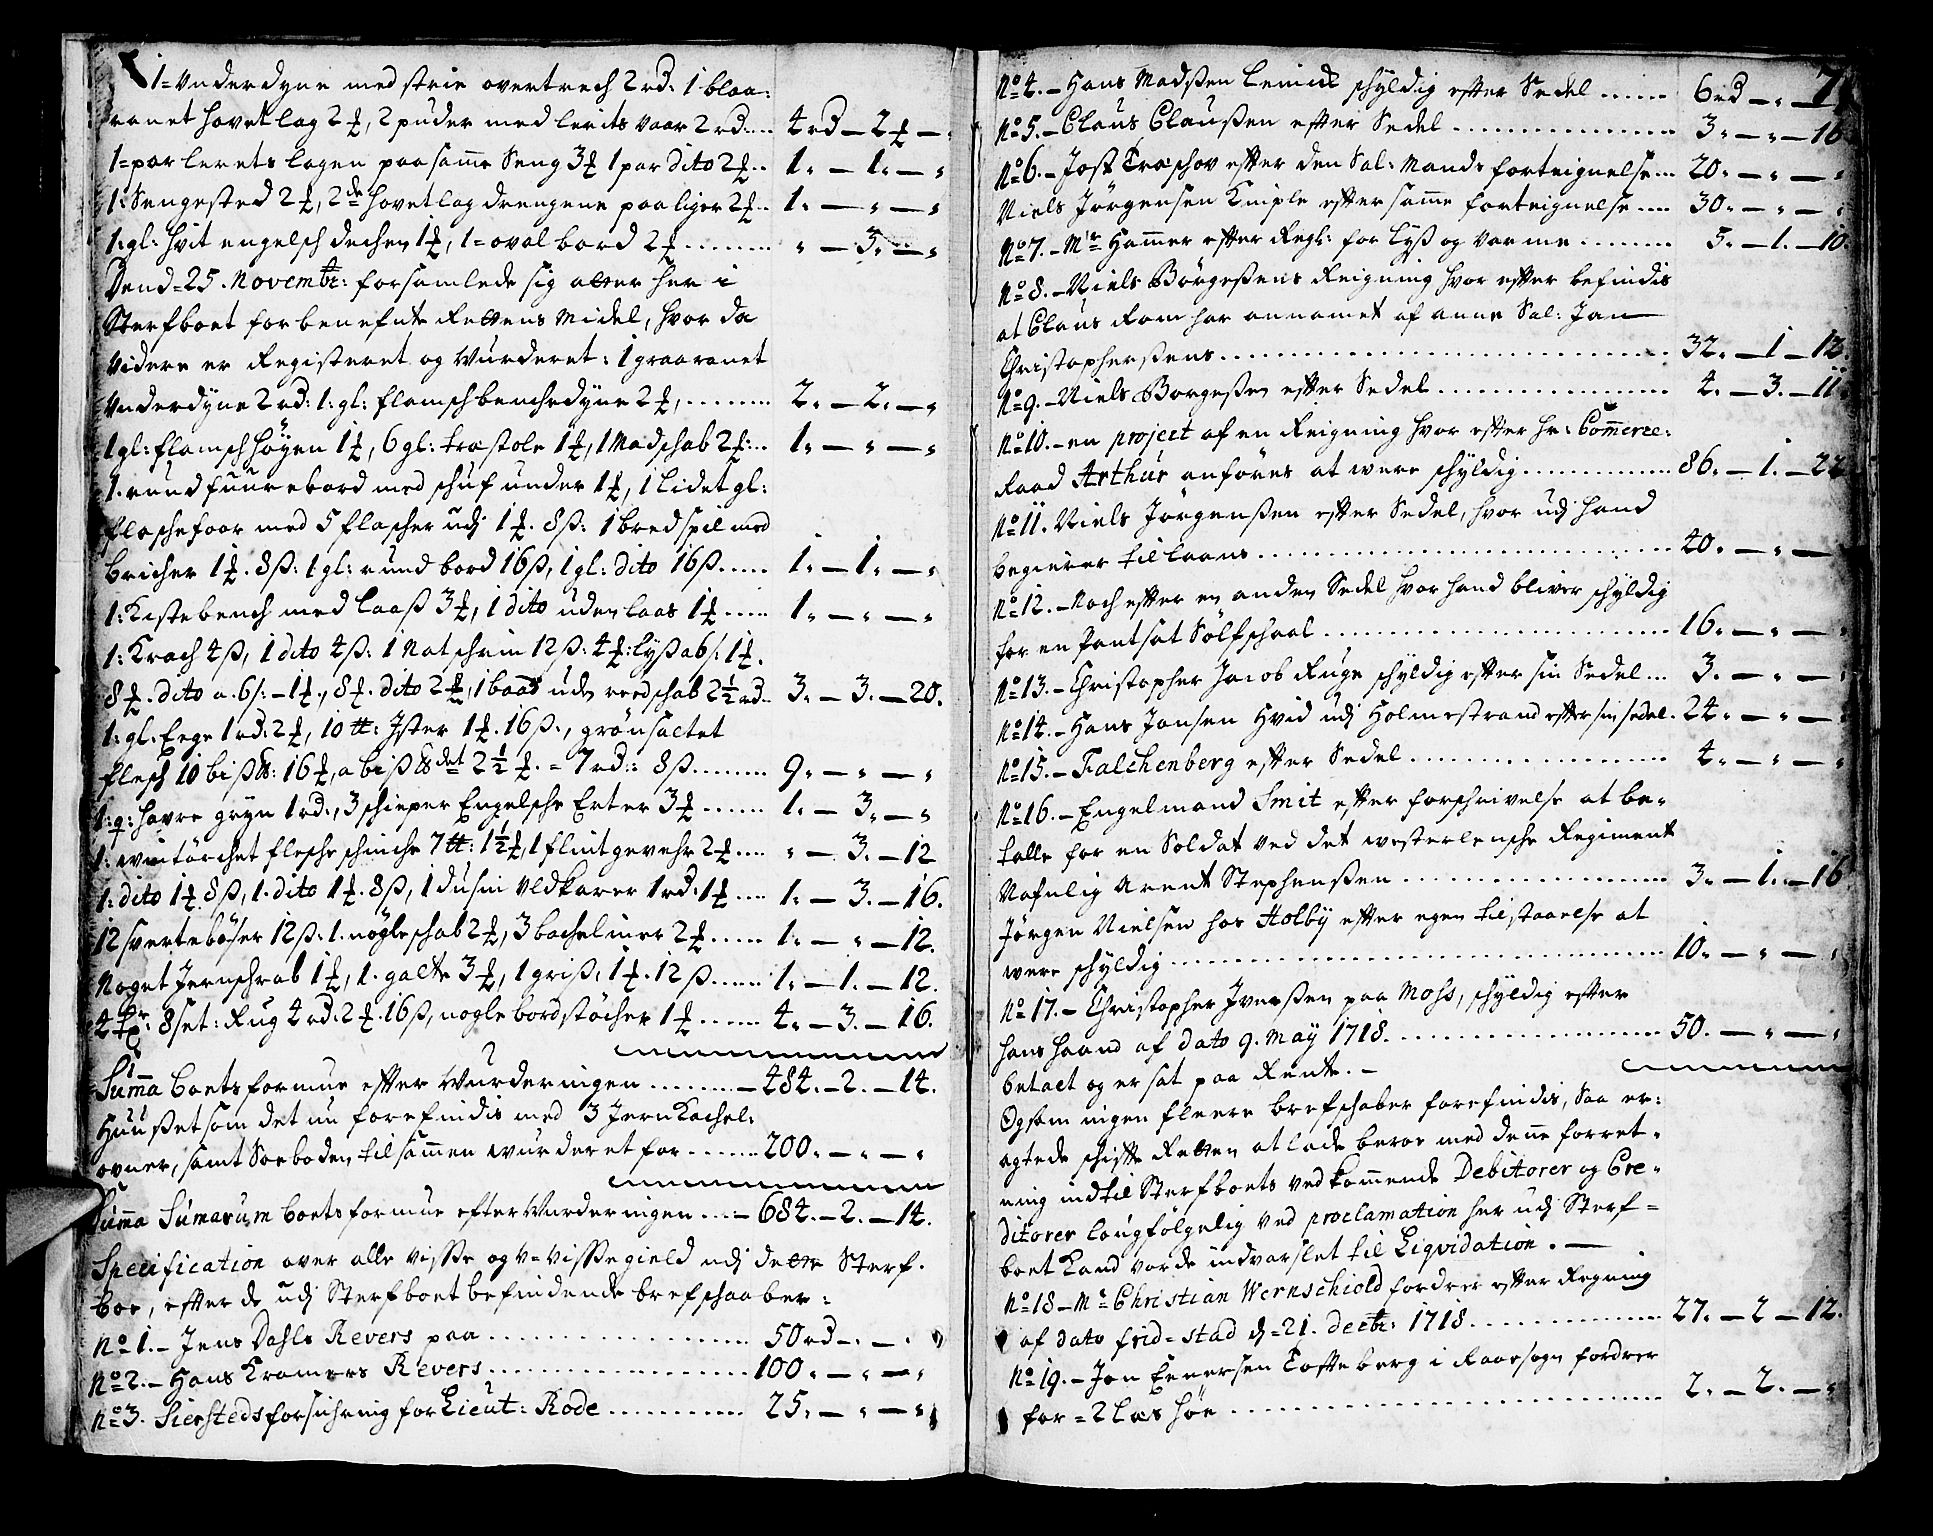 1= Underdyne med strie overtrech 2 rd: 1 blaa:
ranet hovetlag 2 ƒ, 2 puder med lerits vaar 2 rd.... 4 rd – 2 ƒ – "
1= par lerets lagen paa samme Seng 3 ƒ 1 par dito 2 ƒ.. 1. – 1. – "
1: Sengested 2 ƒ, 2de hovetlag drengene paa liger 2 ƒ.. 1. – " – "
1: gl: hvit engelsch dechen 1 ƒ, 1= oval bord 2 ƒ........ " – 3. – "
Dend= 25. Novembr: forsamlede sig atter her i
Sterfboet forbenefnte Rettens Midel, hvor da
videre er Registeret og Wurderet: 1 graaranet
Underdyne 2 rd: 1: gl: flamsch benchedyne 2 ƒ,........ 2. – 2. – "
1 gl: flamsch høyen 1 ƒ, 6 gl: træstole 1 ƒ, 1 Madschab 2 ƒ:.. 1. – " – "
1. rund fuurebord med schuf under 1 ƒ, 1 lidet gl:
flaschefoer med 5 flascher udj 1 ƒ. 8 ß: 1 bredspil med
bricher 1 ƒ. 8 ß: 1 gl: rund bord 16 ß, 1 gl: dito 16 ß..... 1. – 1. – "
1: Kistebench med laaß 3 ƒ, 1 dito uden laas 1 ƒ..... 1. – " – "
1: Krach 4 ß, 1 dito 4 ß: 1 Natschrin 12 ß: 4 ƒ: lyß a 6/: 1 ƒ.
8 ƒ. dito a. 6/: – 1 ƒ., 8 ƒ. dito 2 ƒ, 1 baad uden reedschab 2½ rd.. 3. – 3. – 20.
1: gl: Eege 1 rd: 2 ƒ, 10 tt: Ister 1 ƒ. 16 ß., grønsaltet
flesch 10 biß &: 16 ƒ, a biß &det 2½ ƒ. = 7 rd:: 8 ß........ 9. – " – "
1: q: havre gryn 1 rd:, 3 schieper Engelsche Erter 3 ƒ...... 1. – 3. – "
1: vintørchet flesche schinche 7 tt: 1½ ƒ, 1 flint gevehr 2 ƒ.... " – 3. – 12
1: dito 1 ƒ 8 ß, 1. dito 1 ƒ. 8 ß, 1 dusin Uldkarer 1 rd: 1 ƒ.... 1. – 3. – 16.
12 svertebøser 12 ß: 1. nøgleschab 2 ƒ, 3 bacheliner 2 ƒ...... 1. – " – 12.
Noget Jernschrab 1 ƒ, 1. galte 3 ƒ, 1 griß, 1 ƒ. 12 ß...... 1. – 1. – 12.
4 tr: 8 set: Rug 4 rd: 2 ƒ. 16 ß, nogle bordstøcher 1 ƒ...... 4. – 3. – 16.
Summa boets formue efter Wurderingen........ – 484. – 2. – 14.
Huußet som det nu forefindis med 3 Jern Kachel:
ovner, samt Soeboden tilsammen wurderet for....... 200. – " – "
Summa Sumarum boets formue efter Wurderingen.... – 684. – 2. – 14.
Specification over alle visse og u=visse gield udj dette Sterf.
boe, efter de udj Sterfboet befindende brefschaaber:
No 1. – Jens Dahls Revers paa................ 50 rd – " – "
No 2. – Hans Kramers Revers................ 100. – " – "
No 3. Siersteds forsichring for Lieut: Rode.......... 25. – " – "
7
No 4. – Hans Madßen schyldig efter Sedel...... 6 rd – " –
No 5. – Claus Claußen efter Sedel................ 3. – " – 16
No 6. – Jost Traschov efter den Sal: Mands forteignelse... 20. – " – "
Niels Jørgensen Kniple efter samme forteignelse.... 30. – " – "
No 7. – Mr Hammer efter Regl: for Lyß og Varme........ 5. – 1. – 10.
No 8. – Niels Børgeßens Reigning hvor efter befindis
at Claus Ram har annamet af anne Sal: Jan
Christopherßens................................ 32. – 1 – 12.
No 9. – Niels Borgeßen efter Sedel................ 4. – 3. – 11.
No 10. – en project af en Reigning hvor efter hr: Commerce:
Raad Arthur anføres at were schyldig............ 86. – 1. – 22
No 11. Niels Jørgenßen efter Sedel, hvor udj hand
begierer til laans............................ 40. – " –
No 12. – Noch efter en anden Sedel hvor hand bliver schyldig
for en Pantsat Sølfschaal........................ 16. – " – "
No 13. – Christopher Jacob Ruge schyldig efter sin Sedel... 3. – " – "
No 14. – Hans Jansen Hvid udj Holmestrand efter sin sedel. 24. – " – "
No 15. – Falchenberg efter Sedel................ 4. – " – "
No 16. – Engelmand Smit efter forschrivelse at be-
talle for en Soldat ved det westerlensche Regiment
Nafnlig Arent Stephenßen................ 3. – 1. – 16
Jørgen Nielsen hos Holby efter egen tilstaaelse at
were schyldig................................ 10. – " – "
No 17. – Christopher Iverßen paa Moss, schyldig efter
hans haand af dato 9. May 1718................ 50. – " – "
betalt og er sat paa Rente. –
Og som ingen fleere brefschaber forefindis, saa er:
agtede schifte Retten at lade beroe med denne forret-
ning indtil Sterfboets vedkommende Debitorer og Cre-
ditorer laugfølgelig ved proclamation her udj Sterf=
boet kand vorde indvarslet til Liqvidation. –
No 18 – Mr Christian Wernschiold fordrer efter Regning
af dato frid=stad d= 21. decbr: 1718............ 27. – 2 – 12.
No 19. – Jon Tofteberg i Raaesogn fordrer
for = 2 Læs høe................................ 2. – 2. – "